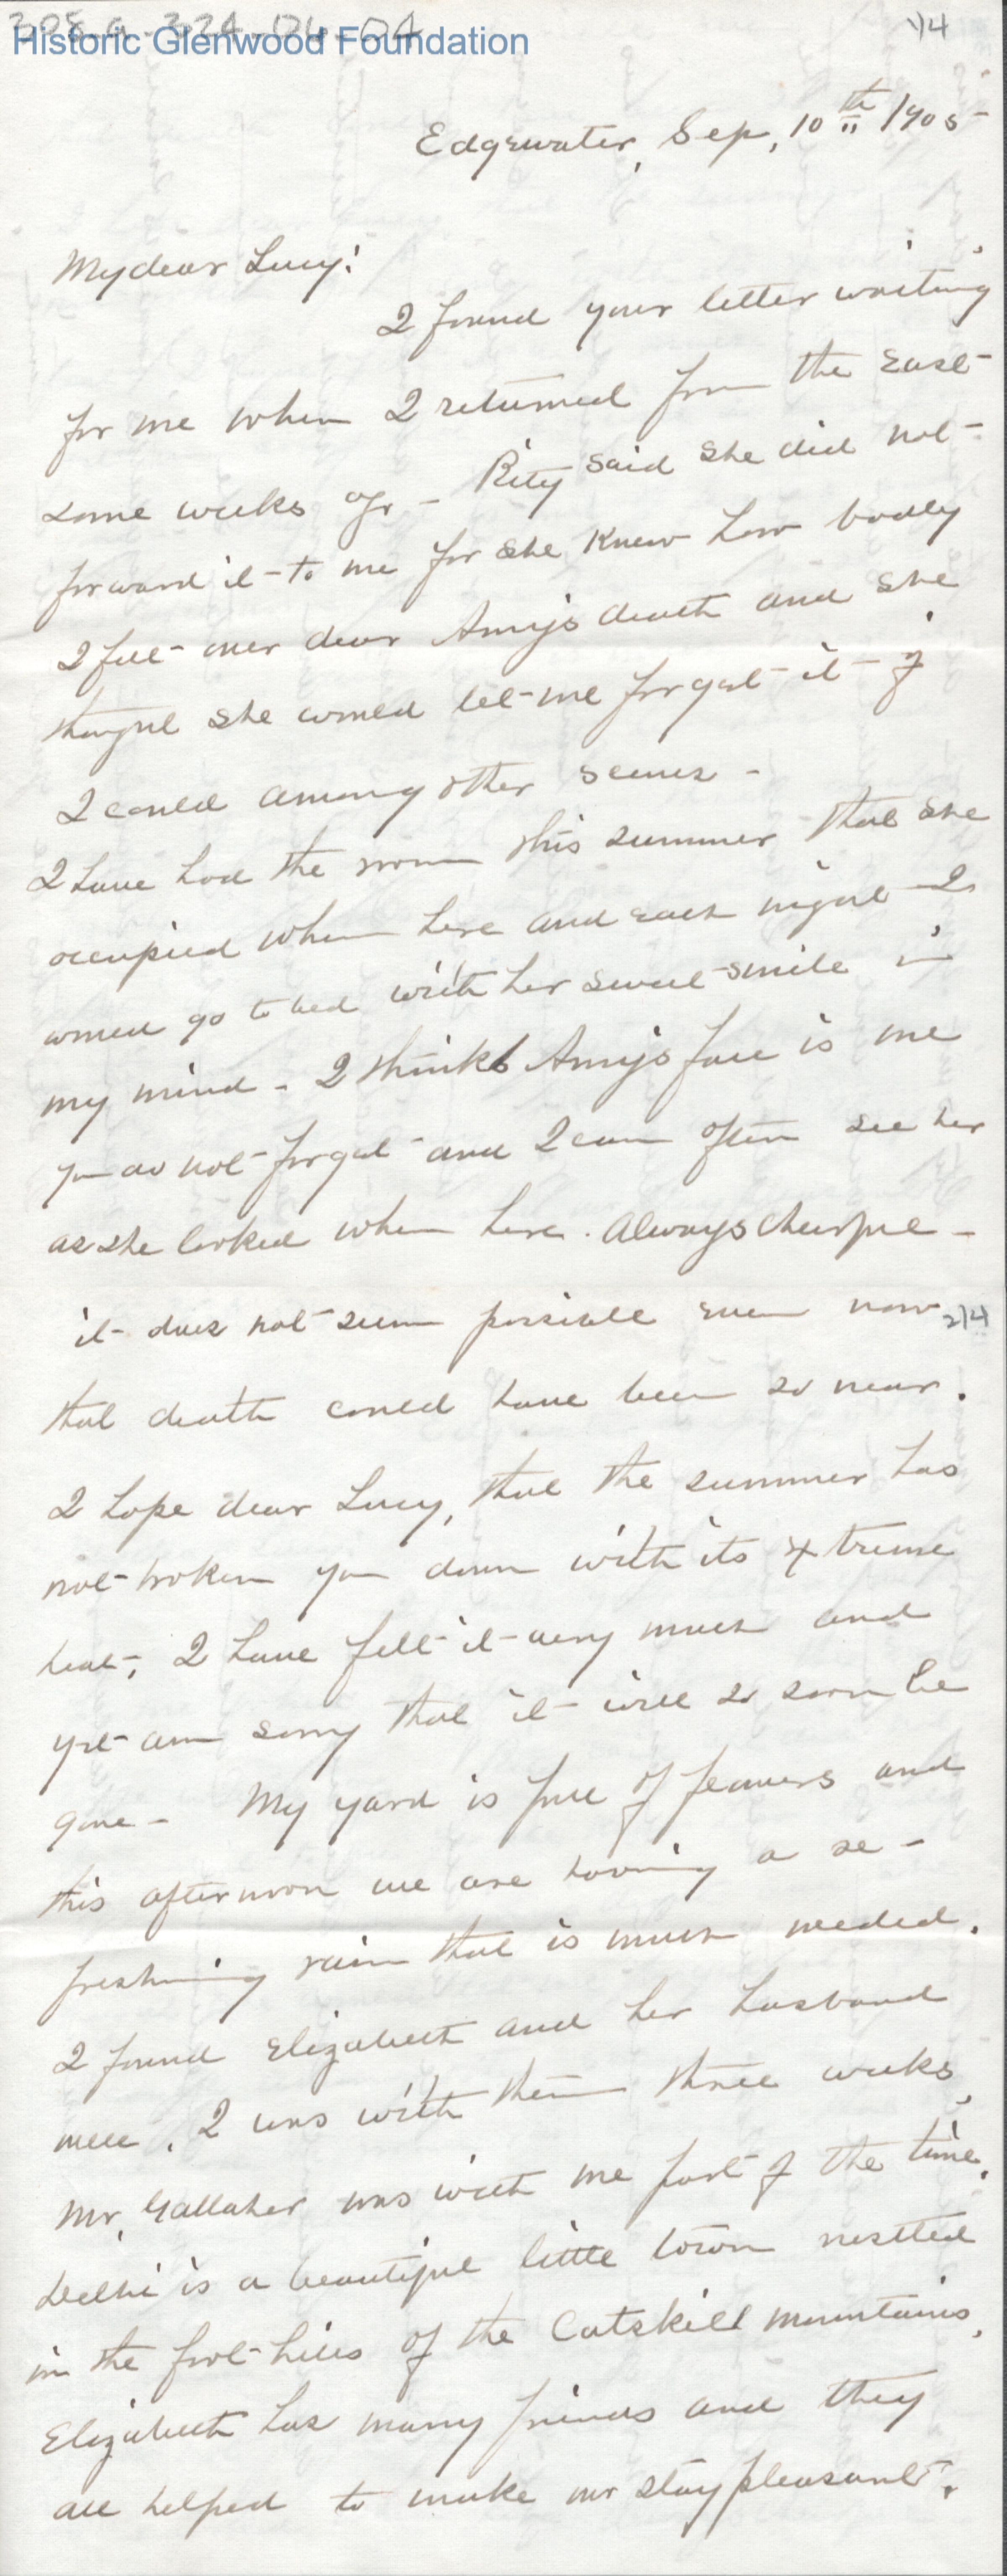 308.a.324.04.04
Historic Glenwood Foundation
1/4
Edgewater, Sep, 10th 1905-
My dear Lucy:
I found your letter waiting
for me when I returned from the East-
some weeks ago - Rity said she did not-
forward it - to me for she knew how badly
I felt - over dear Amy's death and she
thought she would let - me forget - it - if
I could among other scenes -
I have had the room this summer that she
occupied when here and each night I
would go to bed with her sweet smile in
my mind - I think Amy's face is one
you do not - forget - and I can often see her
as she looked when here. Always cheerful -
it - does not - seem possible even now
2/4
that death could have been so near.
I hope dear Lucy, that the summer has
not - broken you down with its extreme
heat, I have felt - it - very much and
yet - am sorry that it - will so soon be
gone - My yard is full of flowers and
this afternoon we are having a re-
freshening rain that is much needed.
I found Elizabeth and her husband
well. I was with them three weeks,
Mr. Gallaher was with me part of the time.
Delhi is a beautiful little town nestled
in the foot-hills of the Catskill mountains,
Elizabeth has many friends and they
all helped to make our stay pleasant.